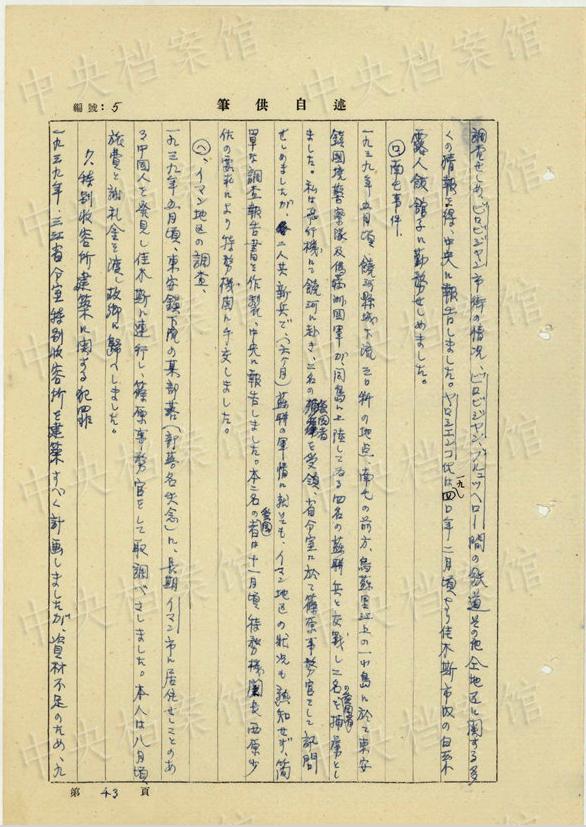 筆供自述
編號：5
調査せしめ、ビロビジヤン市街の情況、ビロビジヤン、ブルユツヘロー間の鉄道其の他全地区に関する多
くの情報を得、中央に報告しました。ヤロシエンコ代は一九四〇年二月頃より佳木斯市内の白系
露人飯館子に勤務せしめました。
(ロ)南七事件、
一九三九年五月頃、饒河縣城下流三〇粁の地点、南七の前方、烏蘇里江上の一小島に於て東安
鎮国境警察隊及偽満洲国軍が、同島に上陸してゐる四名の蘇聯兵と交戦し二名の愛国者を捕虜とし
ました。私は飛行機にて饒河に赴き、二名の愛国者を受領、省公室に於て篠原事務官をして訊問
せしめましたが、二人共新兵で、(六ケ月)蘇聯の軍情に就ても、イマン地区の状況も熟知せず、簡
単な調査報告書を作製、中央に報告しました。本二名の愛国者は十一月頃特務機関長西原少
佐の要求により特務機関に手交しました。
(ハ)、イマン地区の調査、
一九三九年五月頃、東安鎮下流の某部落(部落名失念)に、長期イマン市に居住せしことのあ
る中国人を発見し佳木斯に連行し、篠原事務官をして取調べさしました。本人は八月頃
旅費と謝礼金を渡し故郷に歸へしました。
7、特別收容所建築に関する犯罪
一九三九年、三江省公室特別收容所を建築すべく計画しましたが、資材不足のため、九
第 43 頁
中央档案馆